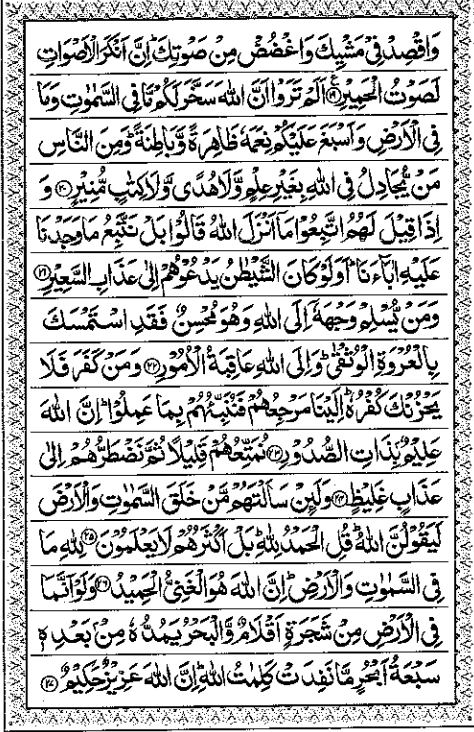 وَاقْصِدْ فِيْ مَشْيِكَ وَاغْضُضْ مِنْ صَوْتِكَ ؕ اِنَّ اَنْكَرَ الْاَصْوَاتِ
لَصَوْتُ الْحَمِيْرِ ﴿١٩﴾ اَلَمْ تَرَوْا اَنَّ اللّٰهَ سَخَّرَ لَكُمْ مَّا فِي السَّمٰوٰتِ وَمَا
فِي الْاَرْضِ وَاَسْبَغَ عَلَيْكُمْ نِعَمَهٗ ظَاهِرَةً وَّبَاطِنَةً ؕ وَمِنَ النَّاسِ
مَنْ يُّجَادِلُ فِي اللّٰهِ بِغَيْرِ عِلْمٍ وَّلَا هُدًى وَّلَا كِتٰبٍ مُّنِيْرٍ ﴿٢٠﴾ وَ
اِذَا قِيْلَ لَهُمُ اتَّبِعُوْا مَا اَنْزَلَ اللّٰهُ قَالُوْا بَلْ نَتَّبِعُ مَا وَجَدْنَا
عَلَيْهِ اٰبَآءَنَا ؕ اَوَلَوْ كَانَ الشَّيْطٰنُ يَدْعُوْهُمْ اِلٰى عَذَابِ السَّعِيْرِ ﴿٢١﴾
وَمَنْ يُّسْلِمْ وَجْهَهٗۤ اِلَى اللّٰهِ وَهُوَ مُحْسِنٌ فَقَدِ اسْتَمْسَكَ
بِالْعُرْوَةِ الْوُثْقٰى ؕ وَاِلَى اللّٰهِ عَاقِبَةُ الْاُمُوْرِ ﴿٢٢﴾ وَمَنْ كَفَرَ فَلَا
يَحْزُنْكَ كُفْرُهٗ ؕ اِلَيْنَا مَرْجِعُهُمْ فَنُنَبِّئُهُمْ بِمَا عَمِلُوْا ؕ اِنَّ اللّٰهَ
عَلِيْمٌۢ بِذَاتِ الصُّدُوْرِ ﴿٢٣﴾ نُمَتِّعُهُمْ قَلِيْلًا ثُمَّ نَضْطَرُّهُمْ اِلٰى
عَذَابٍ غَلِيْظٍ ﴿٢٤﴾ وَلَئِنْ سَاَلْتَهُمْ مَّنْ خَلَقَ السَّمٰوٰتِ وَالْاَرْضَ
لَيَقُوْلُنَّ اللّٰهُ ؕ قُلِ الْحَمْدُ لِلّٰهِ ؕ بَلْ اَكْثَرُهُمْ لَا يَعْلَمُوْنَ ﴿٢٥﴾ لِلّٰهِ مَا
فِي السَّمٰوٰتِ وَالْاَرْضِ ؕ اِنَّ اللّٰهَ هُوَ الْغَنِيُّ الْحَمِيْدُ ﴿٢٦﴾ وَلَوْ اَنَّمَا
فِي الْاَرْضِ مِنْ شَجَرَةٍ اَقْلَامٌ وَّالْبَحْرُ يَمُدُّهٗ مِنْۢ بَعْدِهٖ
سَبْعَةُ اَبْحُرٍ مَّا نَفِدَتْ كَلِمٰتُ اللّٰهِ ؕ اِنَّ اللّٰهَ عَزِيْزٌ حَكِيْمٌ ﴿٢٧﴾